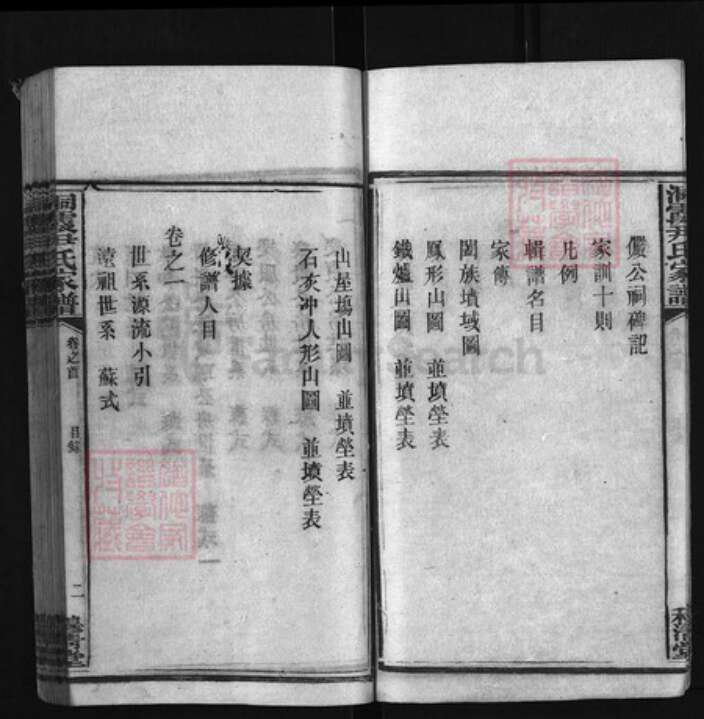 洞霞尹氏家譜
儼公祠碑記
家訓十則
凡例
輯譜名目
家傳
闔族墳域圖
鳳形山圖 並墳塋表
鐵爐山圖 並墳塋表
山屋塢山圖 並墳塋表
石亥冲人形山圖 並墳塋表
契據
修譜人目
卷之一
世系源流小引
遠祖世系 蘇式
洞霞尹氏家譜
卷之首
目錄
二
FamilySearch